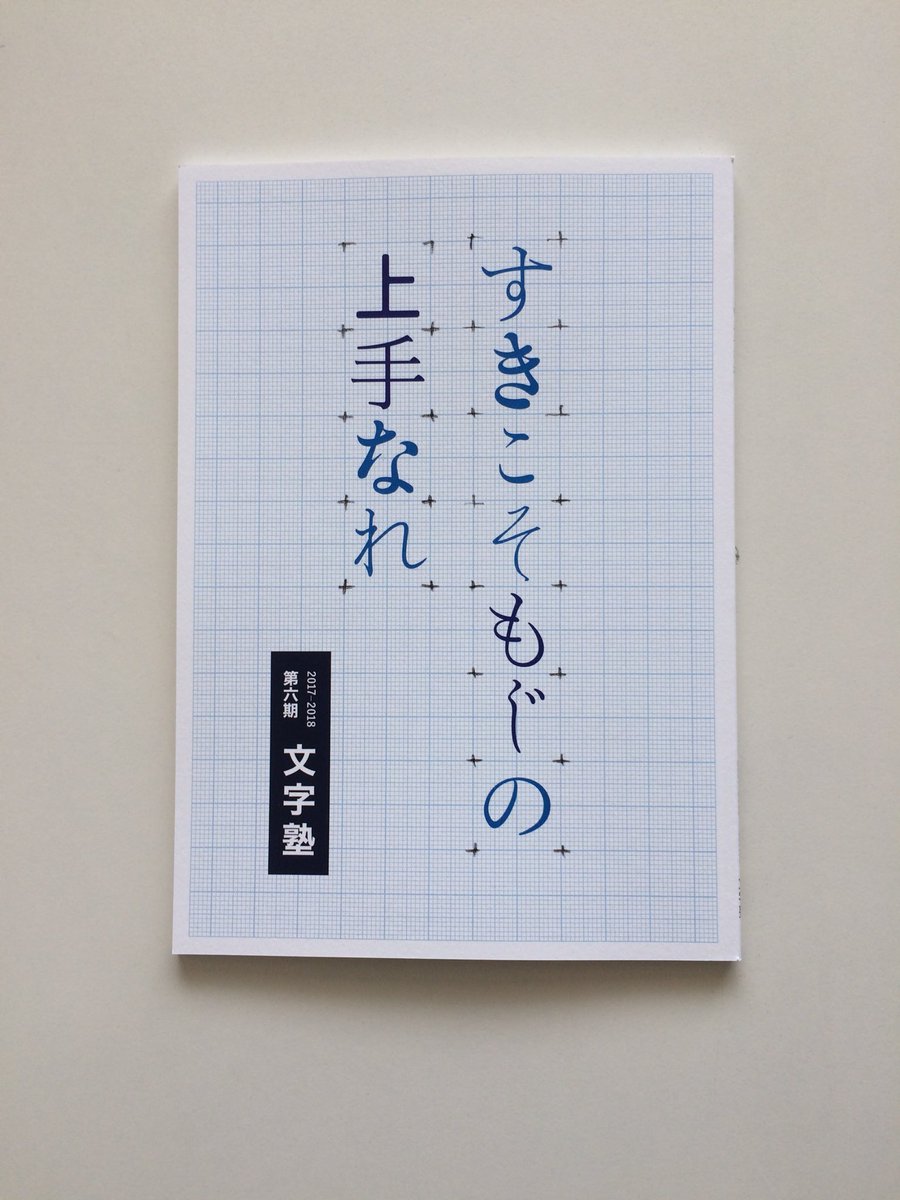 すきこそもじの
上手なれ
2017-2018
第六期
文字塾